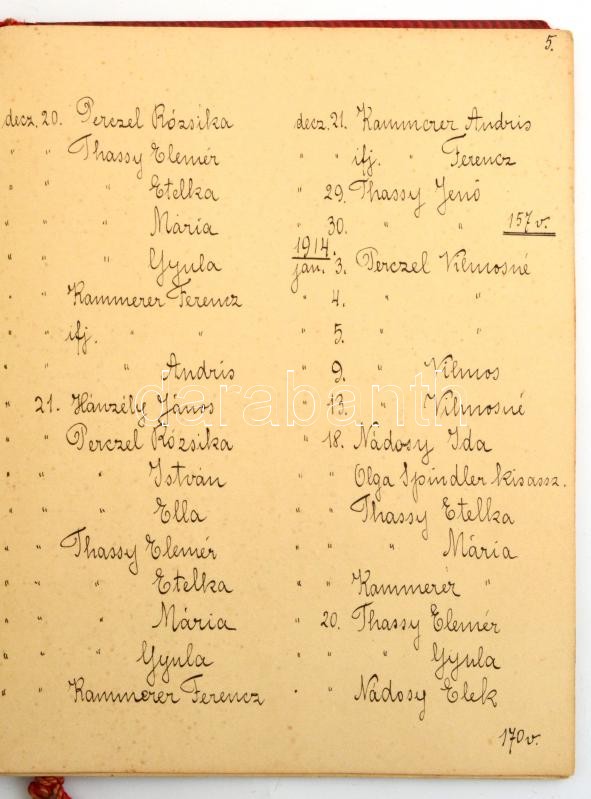 5.
decz. 20. Perczel Rózsika
" " Thassy Elemér
" " " Etelka
" " " Mária
" " " Gyula
" " Kammerer Ferencz
" " ifj. " "
" " " Andris
" 21. Hánzély János
" " Perczel Rózsika
" " " István
" " " Ella
" " Thassy Elemér
" " " Etelka
" " " Mária
" " " Gyula
" " Kammerer Ferencz
decz. 21. Kammerer Andris
" " ifj. " Ferencz
" 29. Thassy Jenő
" 30. " " 157 v.
1914.
jan. 3. Perczel Vilmosné
" 4. " "
" 5. " "
" 9. " Vilmos
" 13. " Vilmosné
" 18. Nádosy Ida
" " Olga Spindler kisassz.
" " Thassy Etelka
" " " Mária
" " Kammerer "
" 20. Thassy Elemér
" " " Gyula
" " Nádosy Elek
170 v.
darabanth